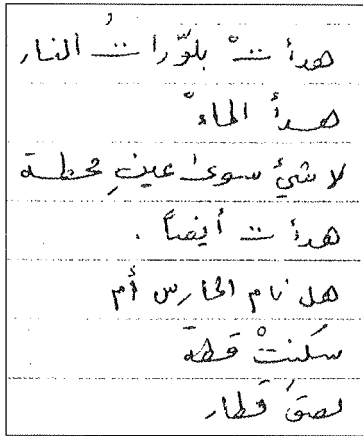 هدأتْ بلوّراتُ النار
هدأ الماءْ
لا شيءَ سوى عينِ محطة
هدأت أيضاً .
هل نام الحارس أم
سكنتْ قطة
لصقَ قطار